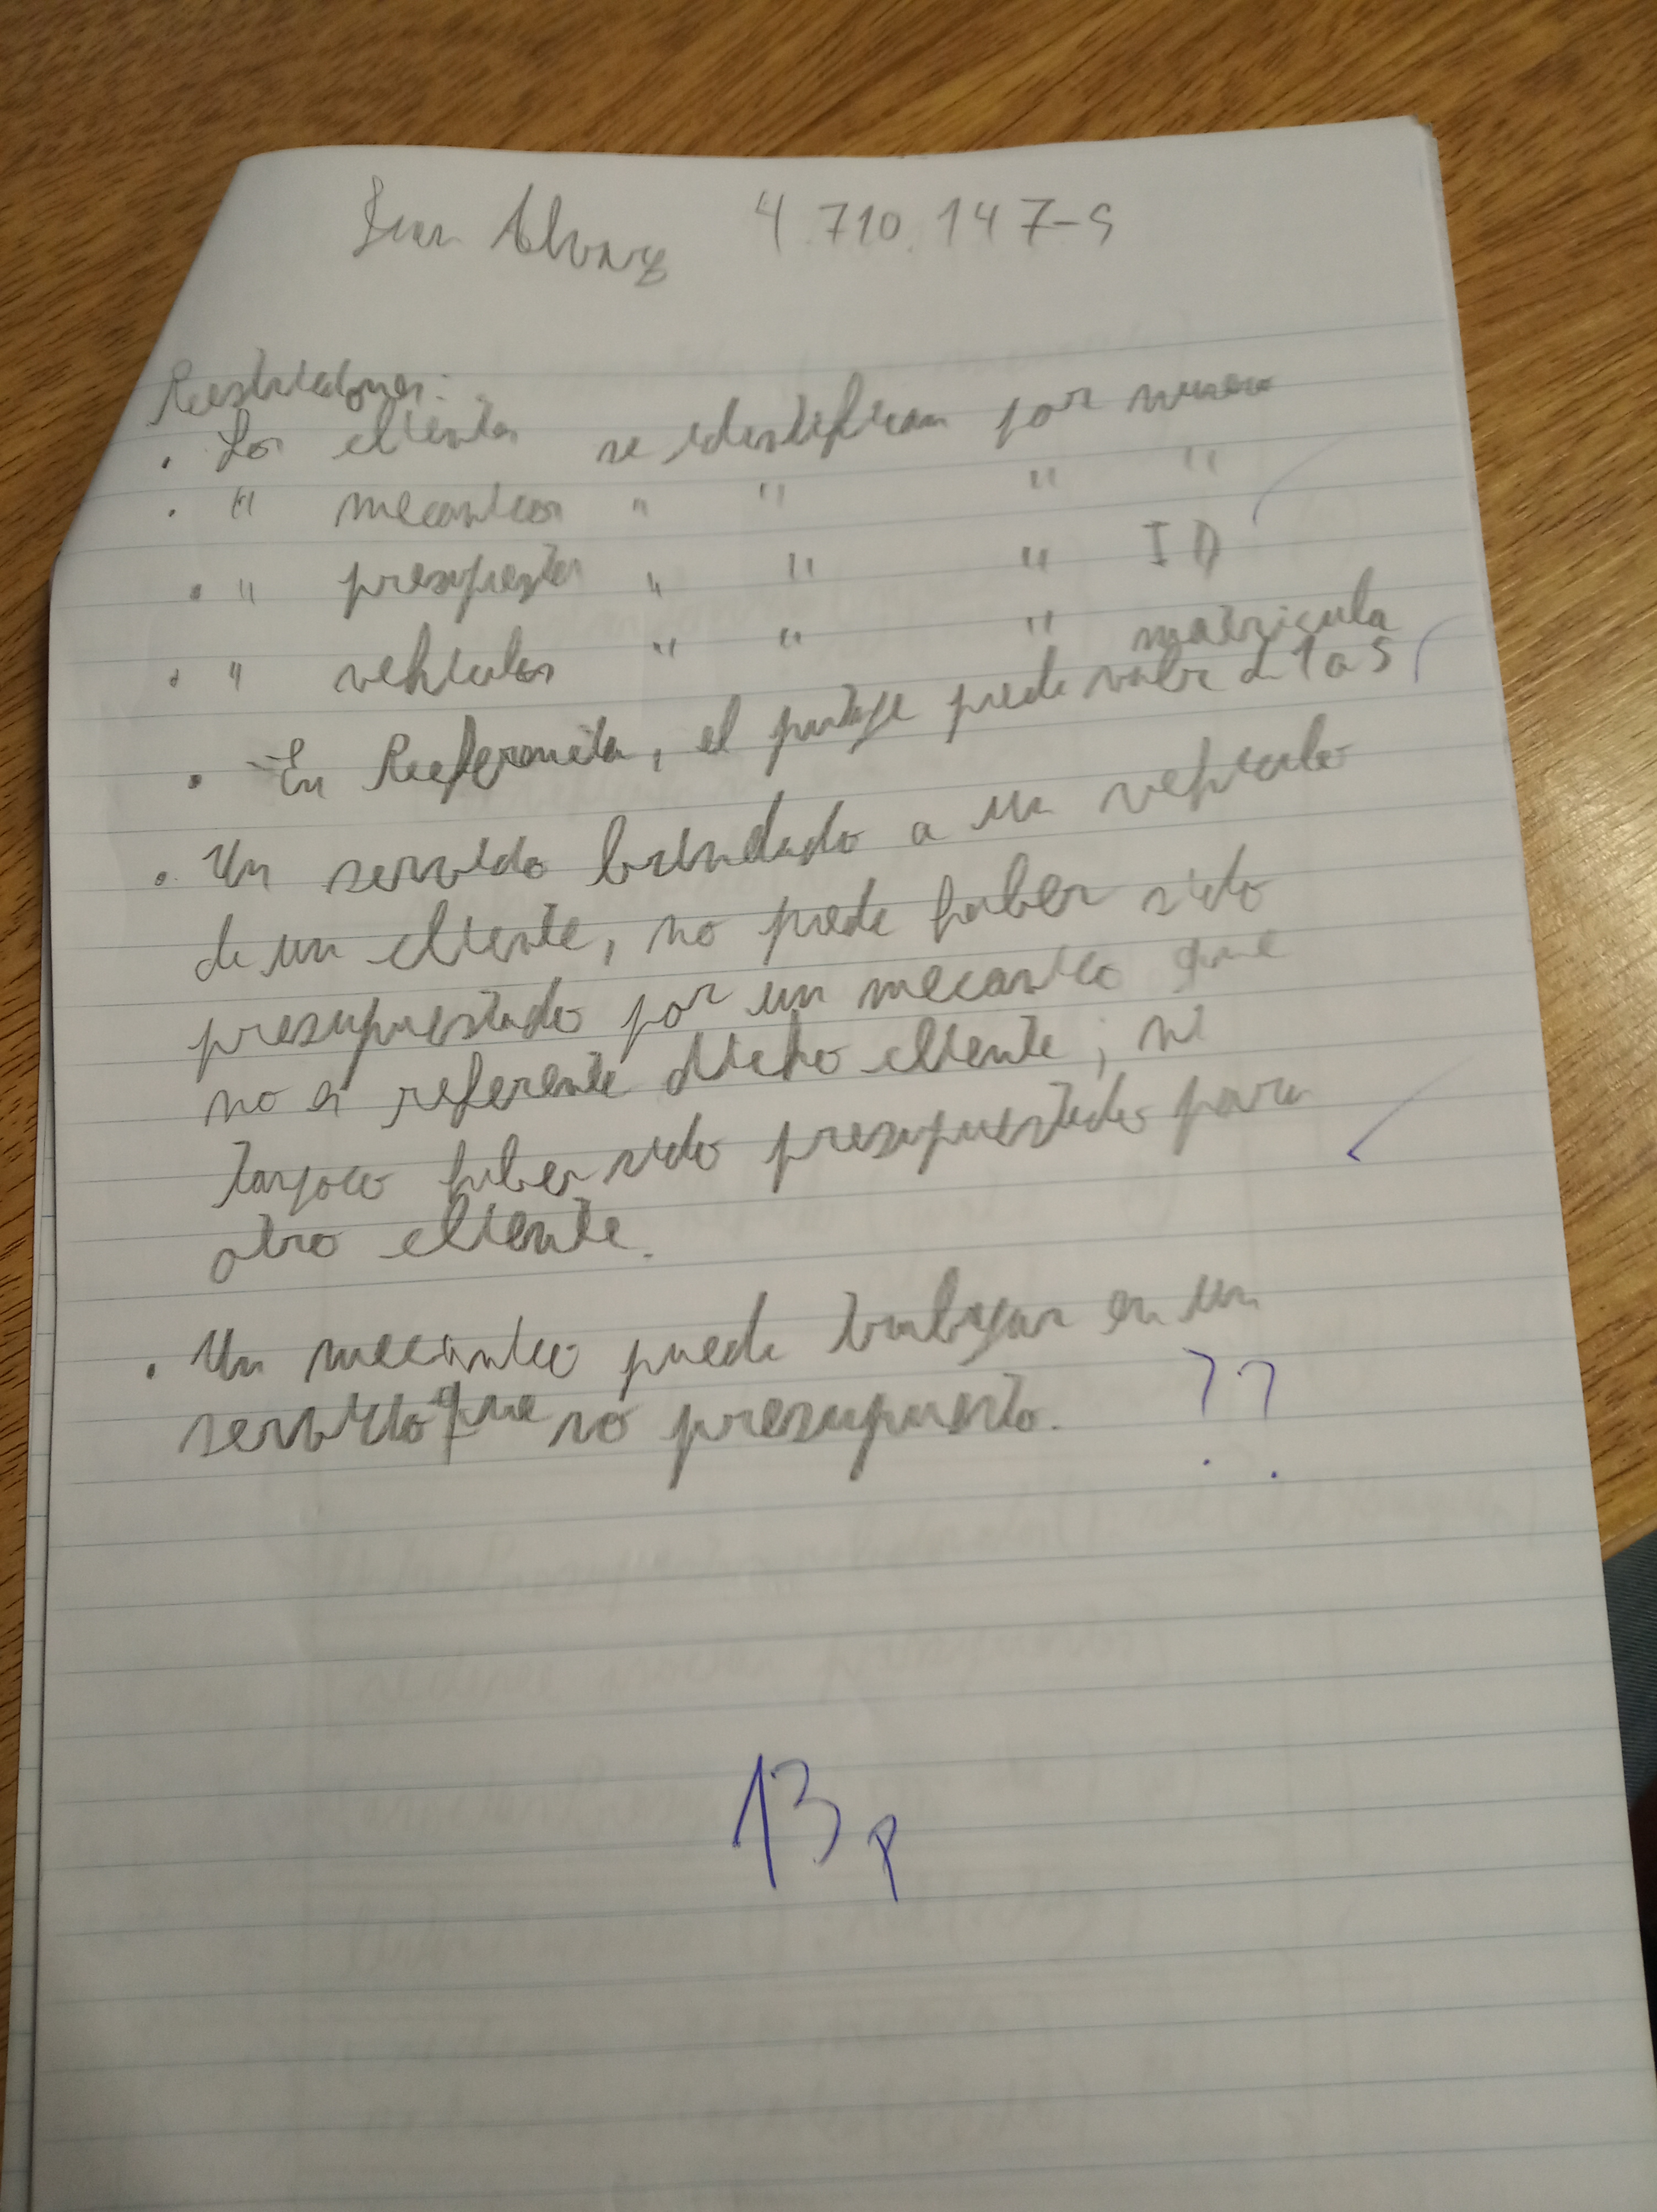 Alvarez 4.710.147-5
Restricciones:
. Los clientes se identifican por numero
. " mecanicos " " " "
. " presupuestos " " " ID
. " vehiculos " " " matricula
. En Referencia, el puntaje puede valer de 1 a 5
. Un servicio brindado a un vehiculo
de un cliente, no puede haber sido
presupuestado por un mecanico que
no es referente dicho cliente; ni
tampoco haber sido presupuestado para
otro cliente.
. Un mecanico puede trabajar en un
servicio que no presupuesto. ??
13p